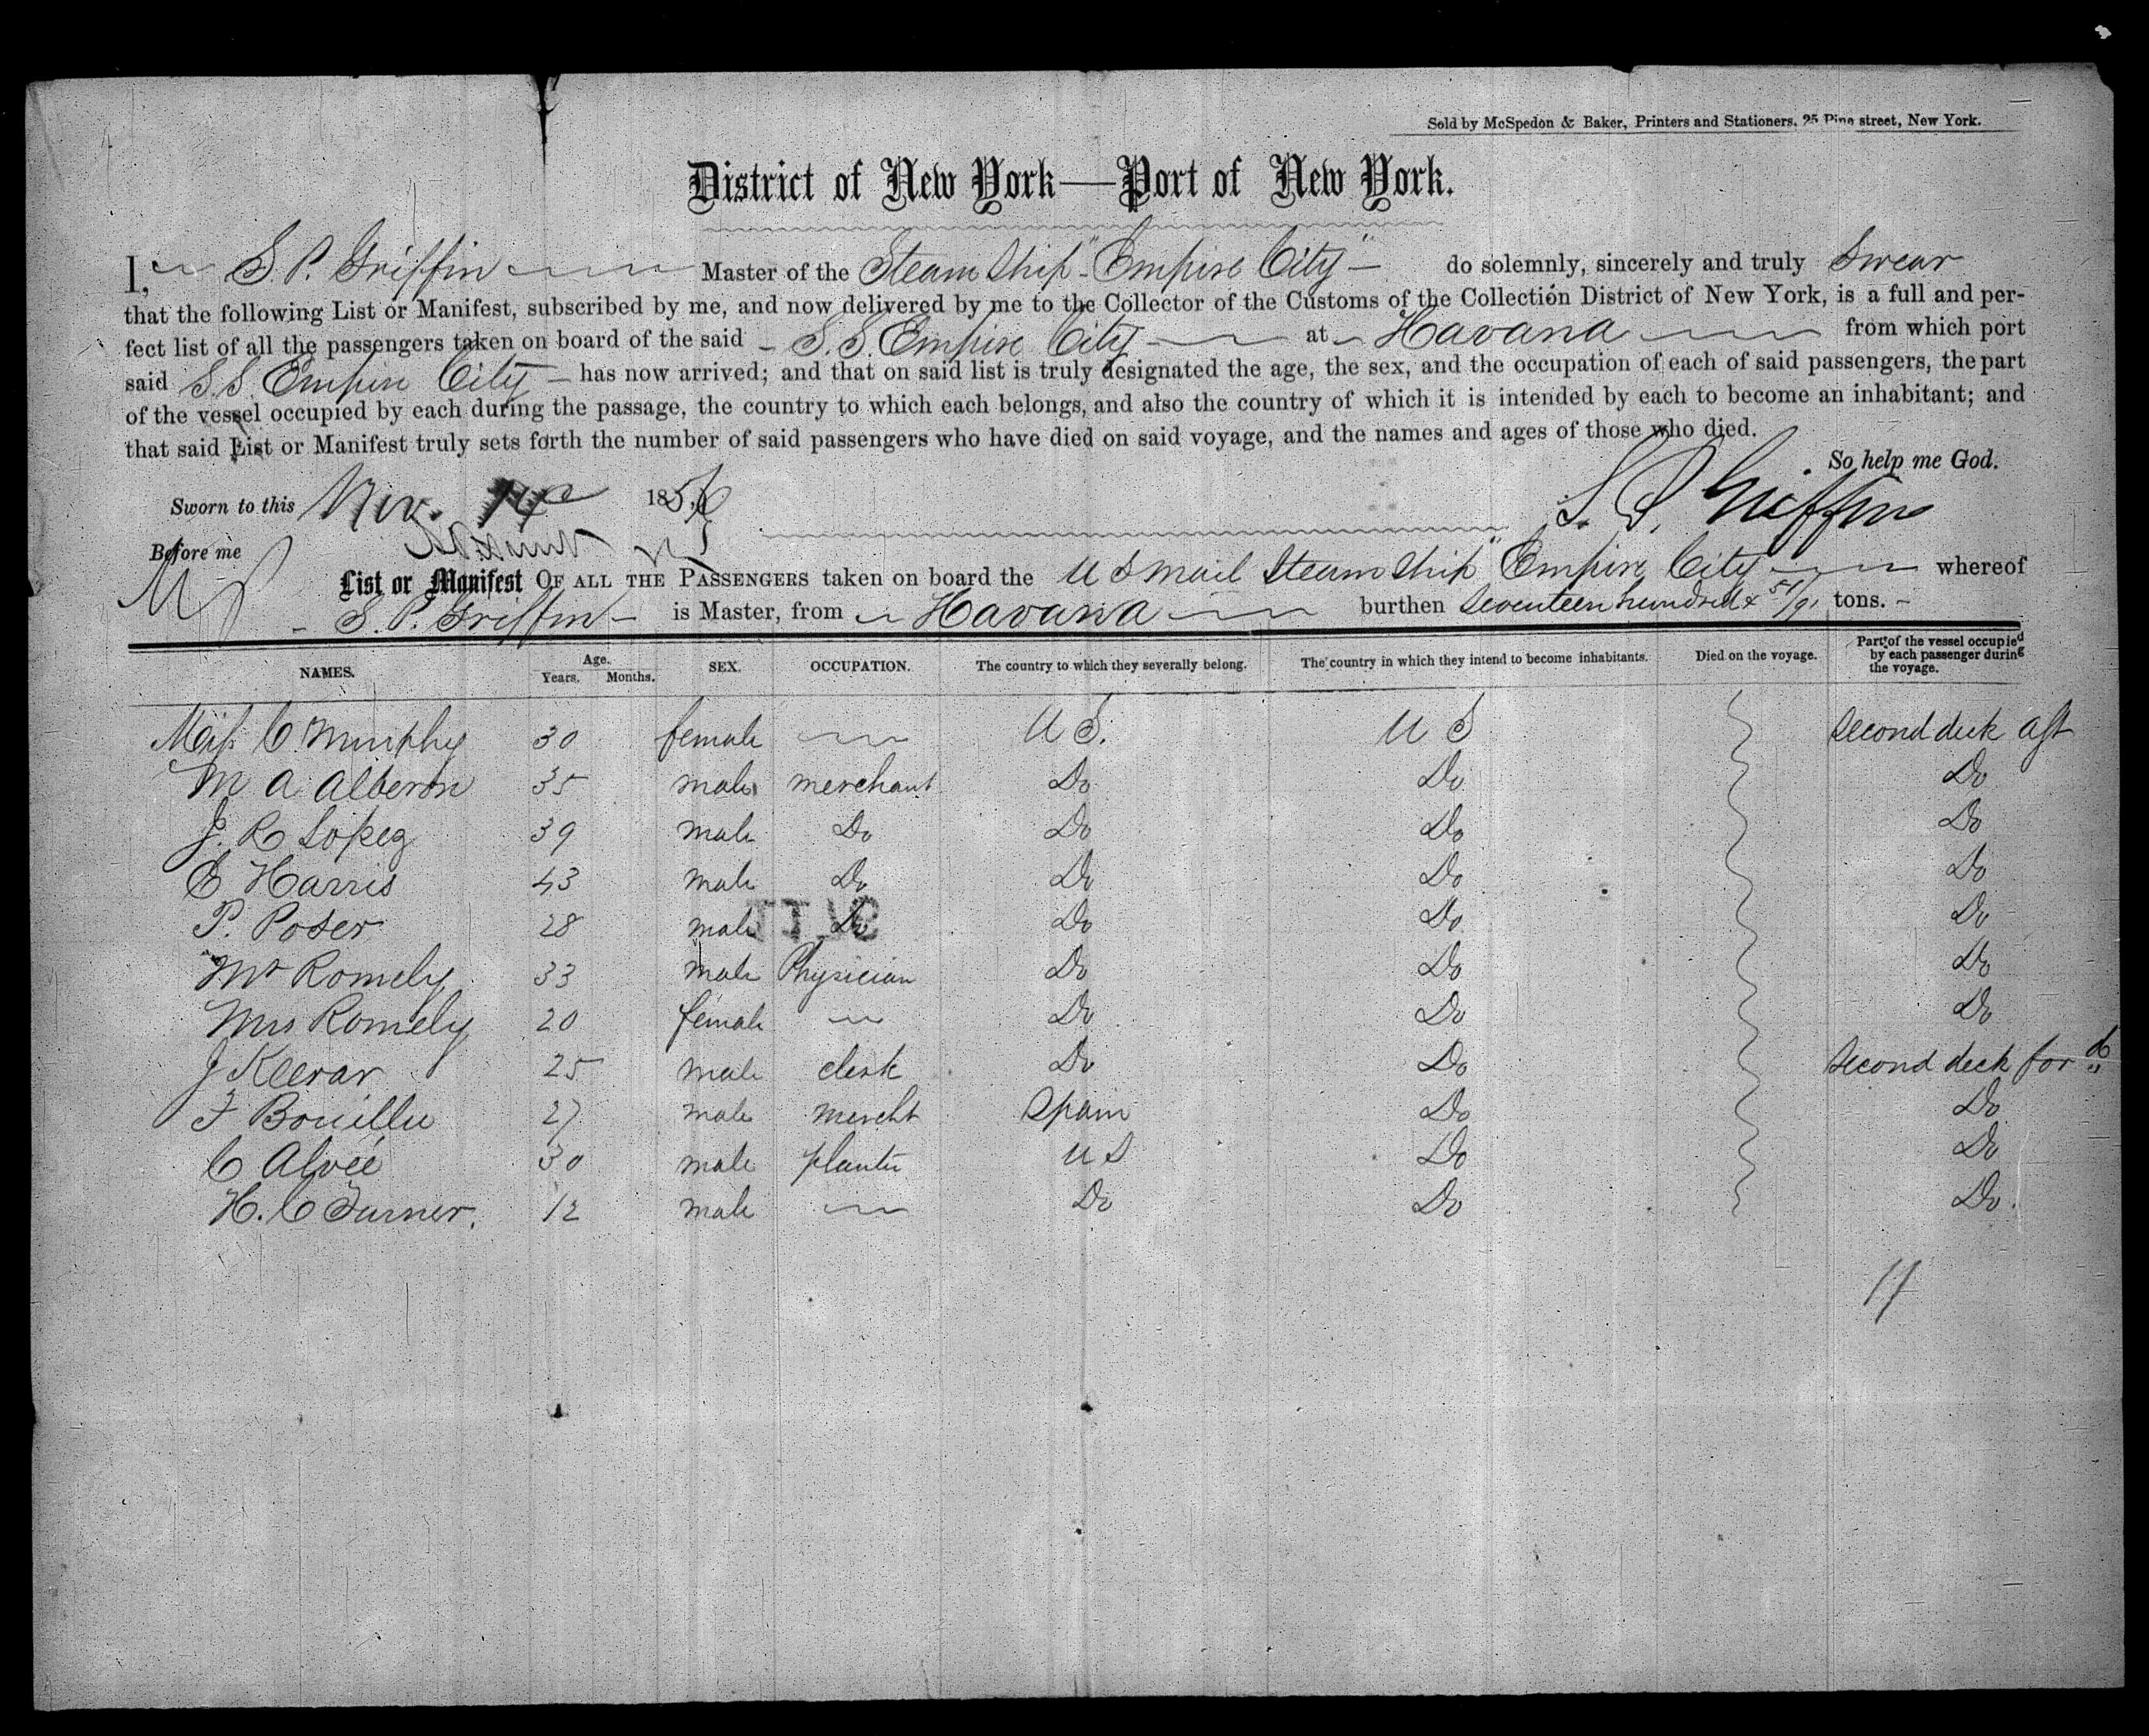 Sold by McSpedon & Baker, Printers and Stationers, 25 Pine street, New York.
District of New York—Port of New York.
I, S. P. Griffin Master of the Steam Ship "Empire City" do solemnly, sincerely and truly Swear
that the following List or Manifest, subscribed by me, and now delivered by me to the Collector of the Customs of the Collection District of New York, is a full and per-
fect list of all the passengers taken on board of the said S.S. Empire City at Havana from which port
said S.S. Empire City has now arrived; and that on said list is truly designated the age, the sex, and the occupation of each of said passengers, the part
of the vessel occupied by each during the passage, the country to which each belongs, and also the country of which it is intended by each to become an inhabitant; and
that said List or Manifest truly sets forth the number of said passengers who have died on said voyage, and the names and ages of those who died.
So help me God.
Sworn to this Nov. 14 1856 S. P. Griffin
Before me
List or Manifest OF ALL THE PASSENGERS taken on board the U S Mail Steam Ship "Empire City whereof
S. P. Griffin is Master, from Havana burthen Seventeen hundred & 51/91 tons.
NAMES. Age. Years. Months. SEX. OCCUPATION. The country to which they severally belong. The country in which they intend to become inhabitants. Died on the voyage. Part of the vessel occupied by each passenger during the voyage.
Miss C. Murphy 30 female U S. U S Second deck aft
M A Alberon 35 male merchant Do Do Do
J. R Lopez 39 male Do Do Do Do
E Harris 43 male Do Do Do Do
P. Poser 28 male Do Do Do Do
Mr Romely 33 male Physician Do Do Do
Mrs Romely 20 female Do Do Do
J Keerar 25 male clerk Do Do Second deck for d
F Bouillu 27 male mercht Spain Do Do
C Alvée 30 male planter U S Do Do
H. C Turner. 12 male Do Do Do.
11